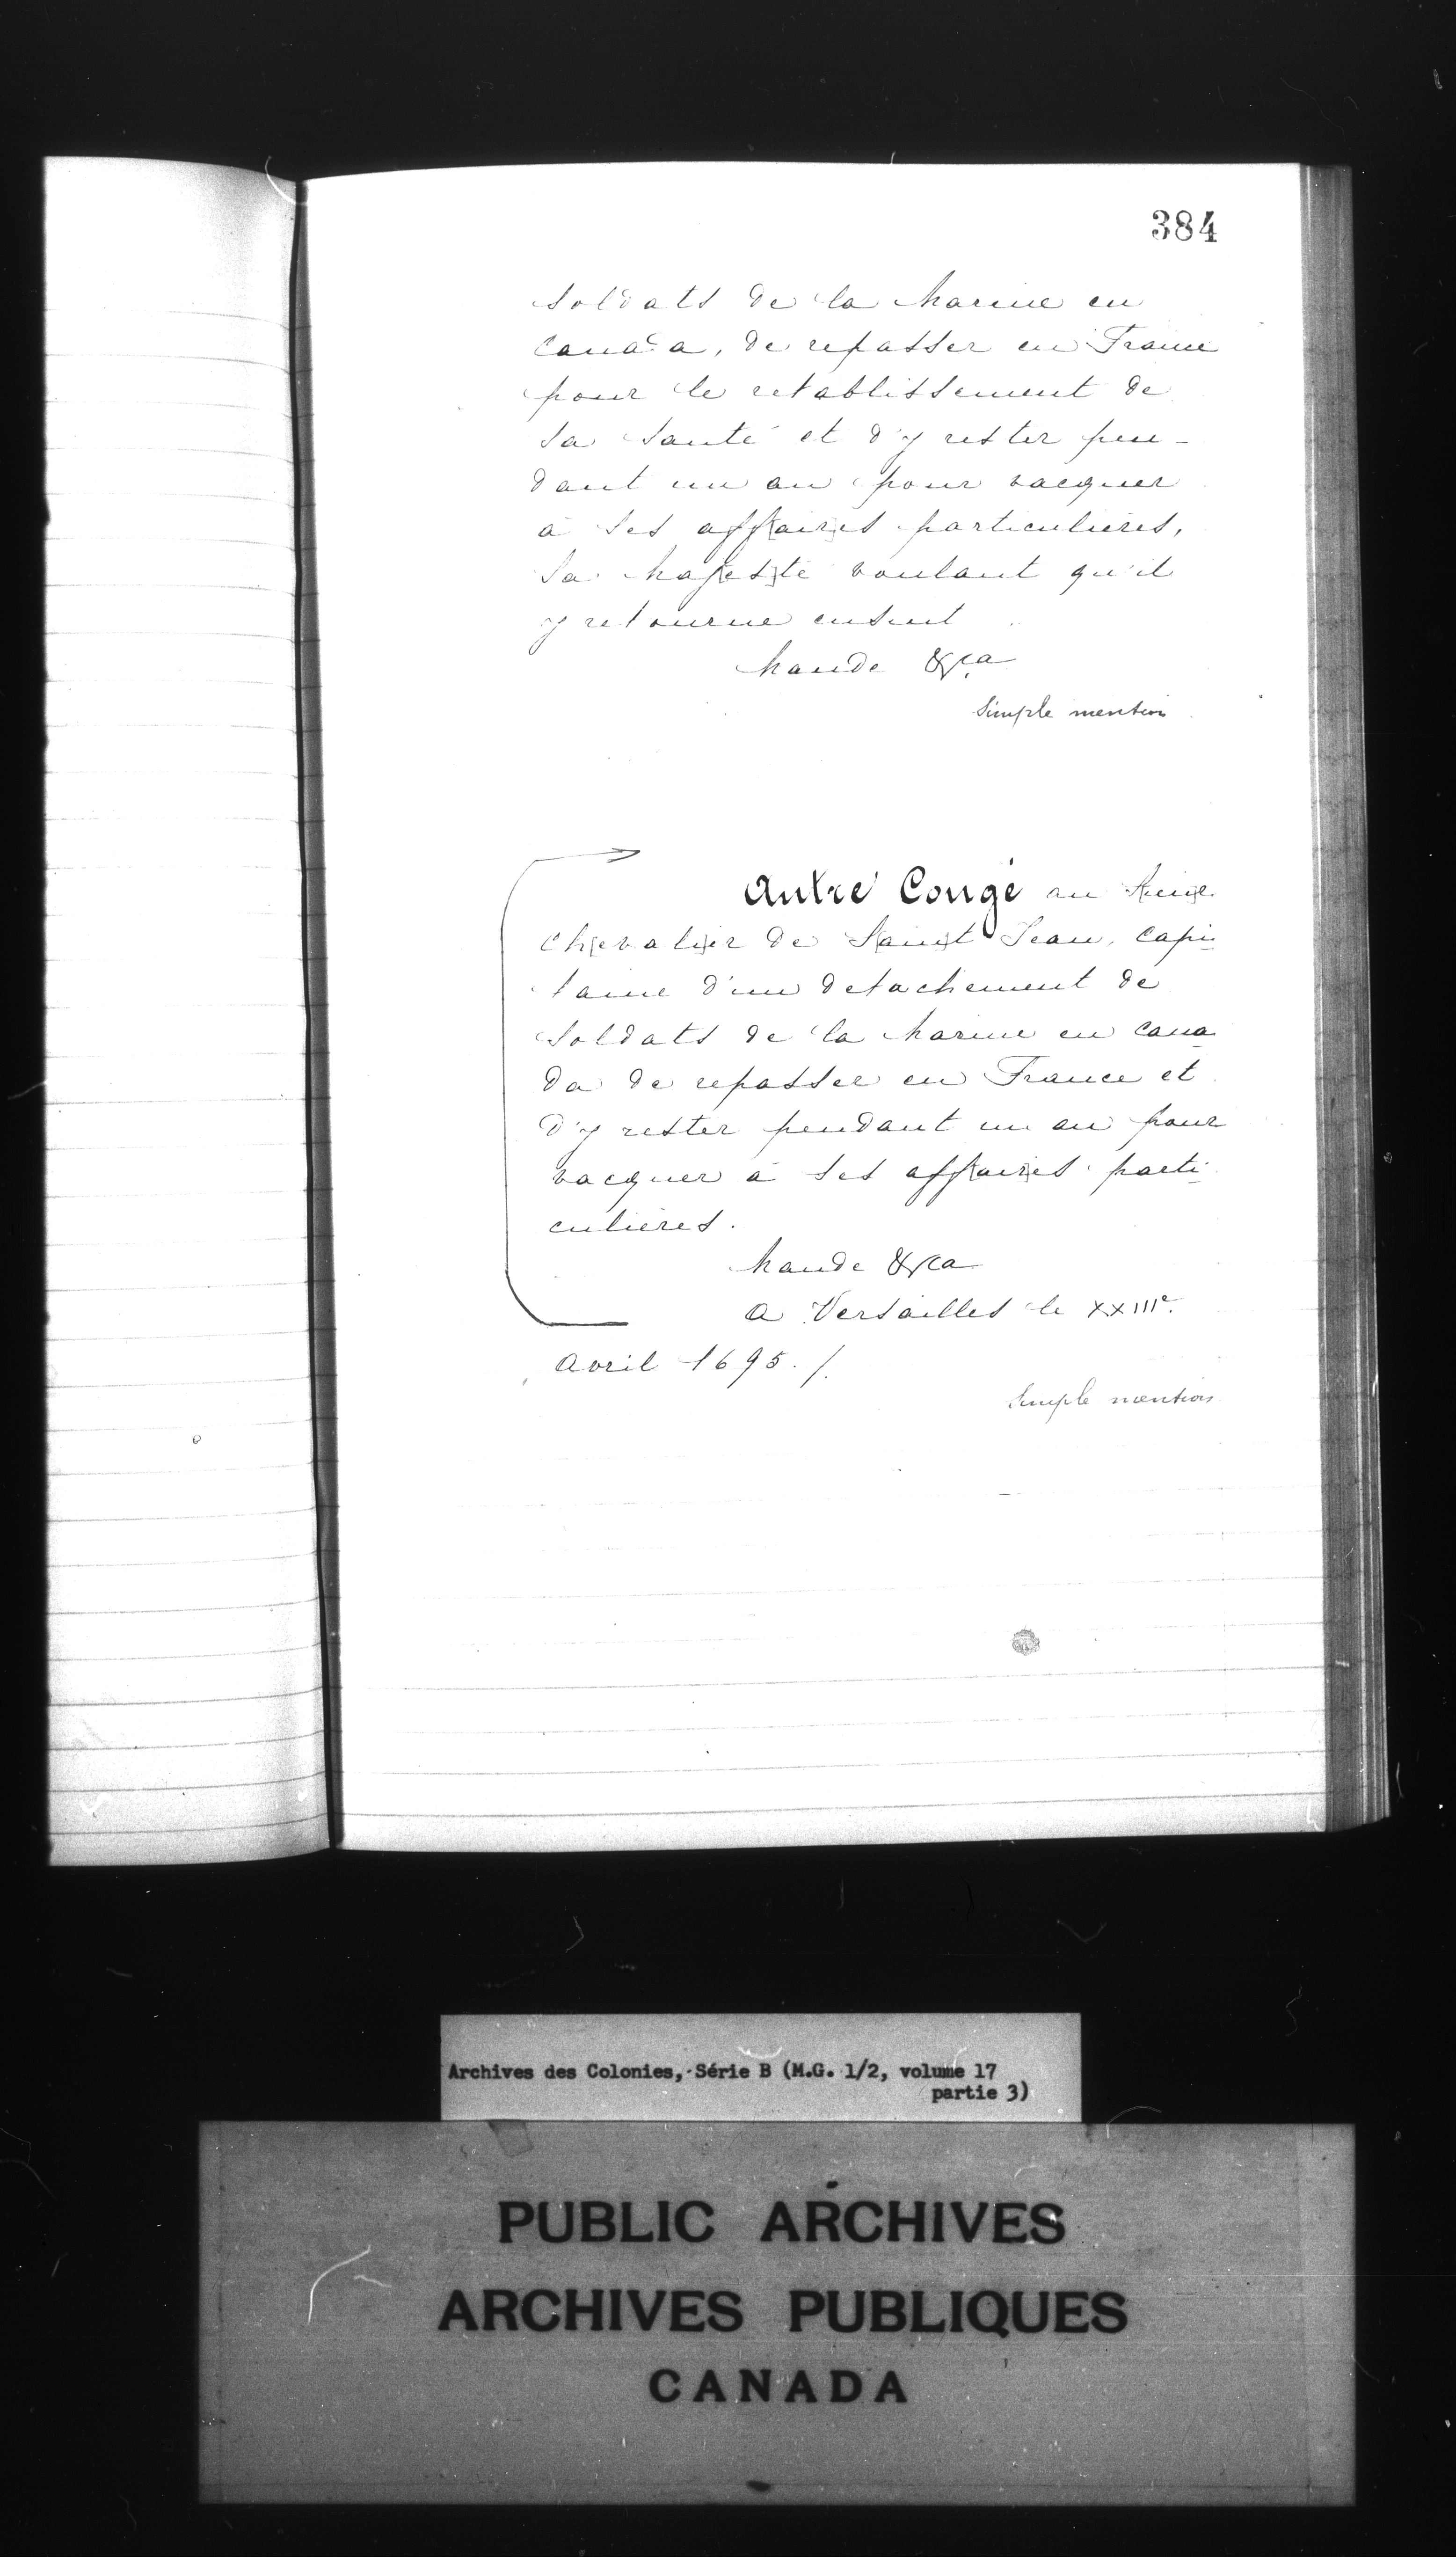 384
soldats de la Marine en
Canada, de repasser en France
pour le retablissement de
sa santé et d'y rester pen-
dant un an pour vacquer
à ses aff[air]es particulières,
Sa Maj[es]té voulant qu'il
y retourne ensuit
Mande &ca
Simple mention
Autre Congé au
Ch[eva]l[i]er de S[ain]t Jean, Capi-
taine d'un detachement de
soldats de la Marine en Cana-
da de repasser en France et
d'y rester pendant un an pour
vacquer à ses aff[air]es parti-
culières.
Mande &ca
A Versailles le XXIIIe.
Avril 1695. /.
Simple mention
Archives des Colonies, Série B (M.G. 1/2, volume 17
partie 3)
PUBLIC ARCHIVES
ARCHIVES PUBLIQUES
CANADA